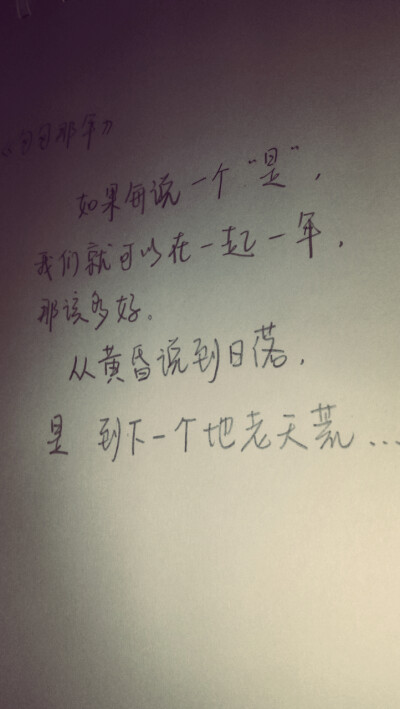 《匆匆那年》
如果每说一个“是”，
我们就可以在一起一年，
那该多好。
从黄昏说到日落，
是 到下一个地老天荒...